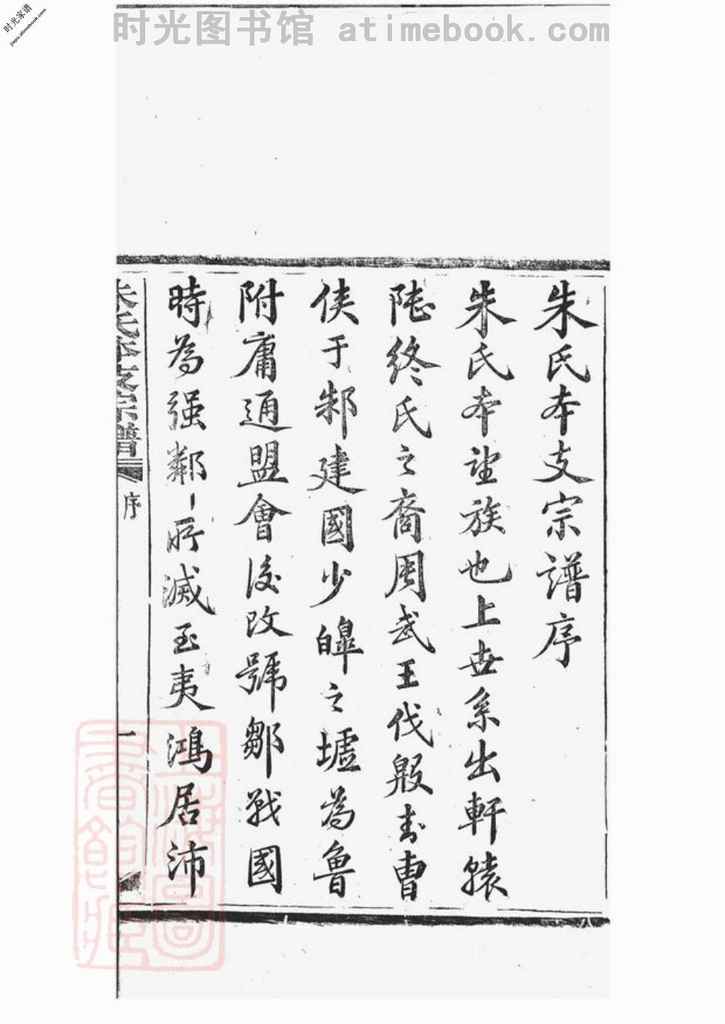 时光图书馆 atimebook.com
时光家谱
朱氏本支宗譜序
朱氏本望族也上世系出軒轅
陸終氏之裔周武王伐殷封曹
侠于邾建國少皥之墟為魯
附庸通盟會後改號鄒戰國
時為强鄰〻所滅至夷鴻居沛
朱氏本支宗譜
序
一